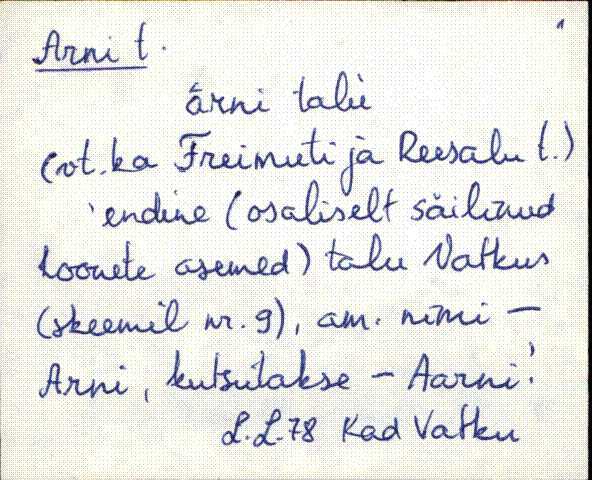 Arni t.
ārni talu̇
(vt. ka Freimuti ja Reesalu t.)
'endine (osaliselt säilinud
hoonete asemed) talu Vatkus
(skeemil nr. 9), am. nimi —
Arni, kutsutakse — Aarni!
L.L.78 Kad Vatku